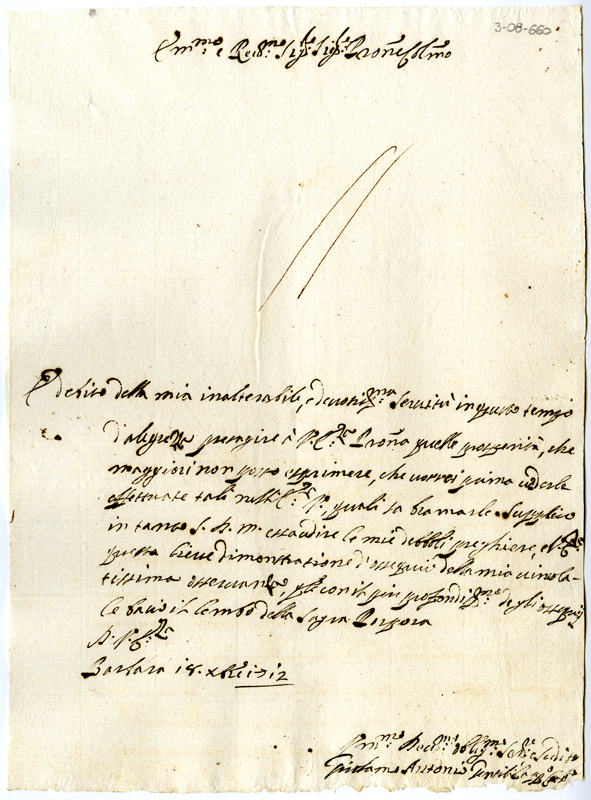 3-08-660
Em.mo e Re.mo Sig.re Sig.re Prone Col.mo
È debito della mia inalterabile, e devotis.ma servitù in questo tempo
d'alegrezza presagire à V. Em.za Prona quelle prosperità, che
maggiori non posso esprimere, che vorrei prima vederle
effettuate tali nell' Em.za V., quali sa bramarle. Supplico
in tanto S. D. M. essaudire le mie debboli preghiere, e
questa breve dimostratione d'ossequio della mia inviola-
tissima osservanza, con il più profondis.mo degli ossequij
Le bacio il lembo della Sagra Porpora
D. V. Em.za
Barbara 18. Xbre 1712
Um.mo Dev.mo Oblig.mo Se.re
Girolamo Antonio